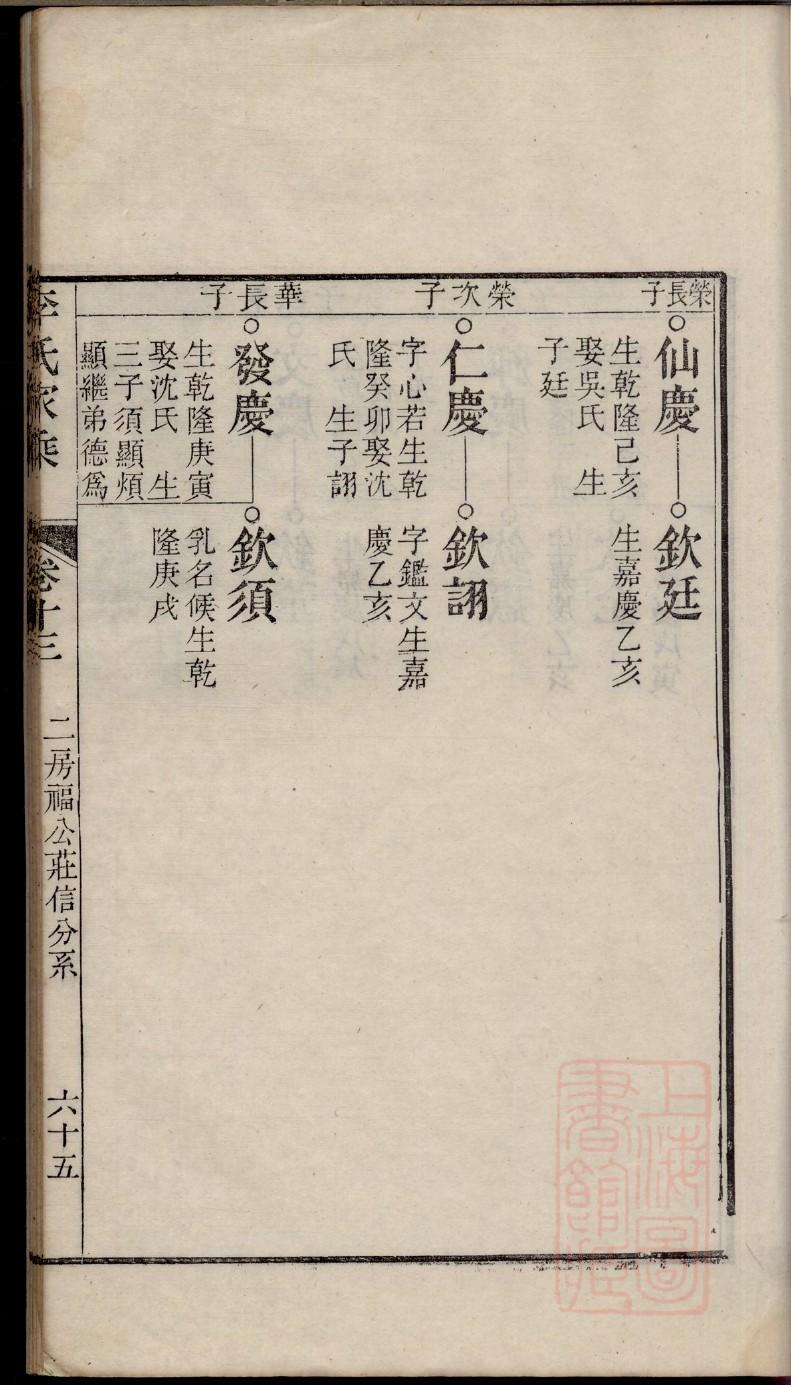 榮長子
仙慶
生乾隆己亥
娶吳氏 生
子廷
欽廷
生嘉慶乙亥
榮次子
仁慶
字心若生乾
隆癸卯娶沈
氏 生子詡
欽詡
字鑑文生嘉
慶乙亥
華長子
發慶
生乾隆庚寅
娶沈氏 生
三子須顯煩
顯繼弟德爲
欽須
乳名候生乾
隆庚戌
李氏家乘 卷十三 二房福公莊信分系 六十五
上海圖
書館藏